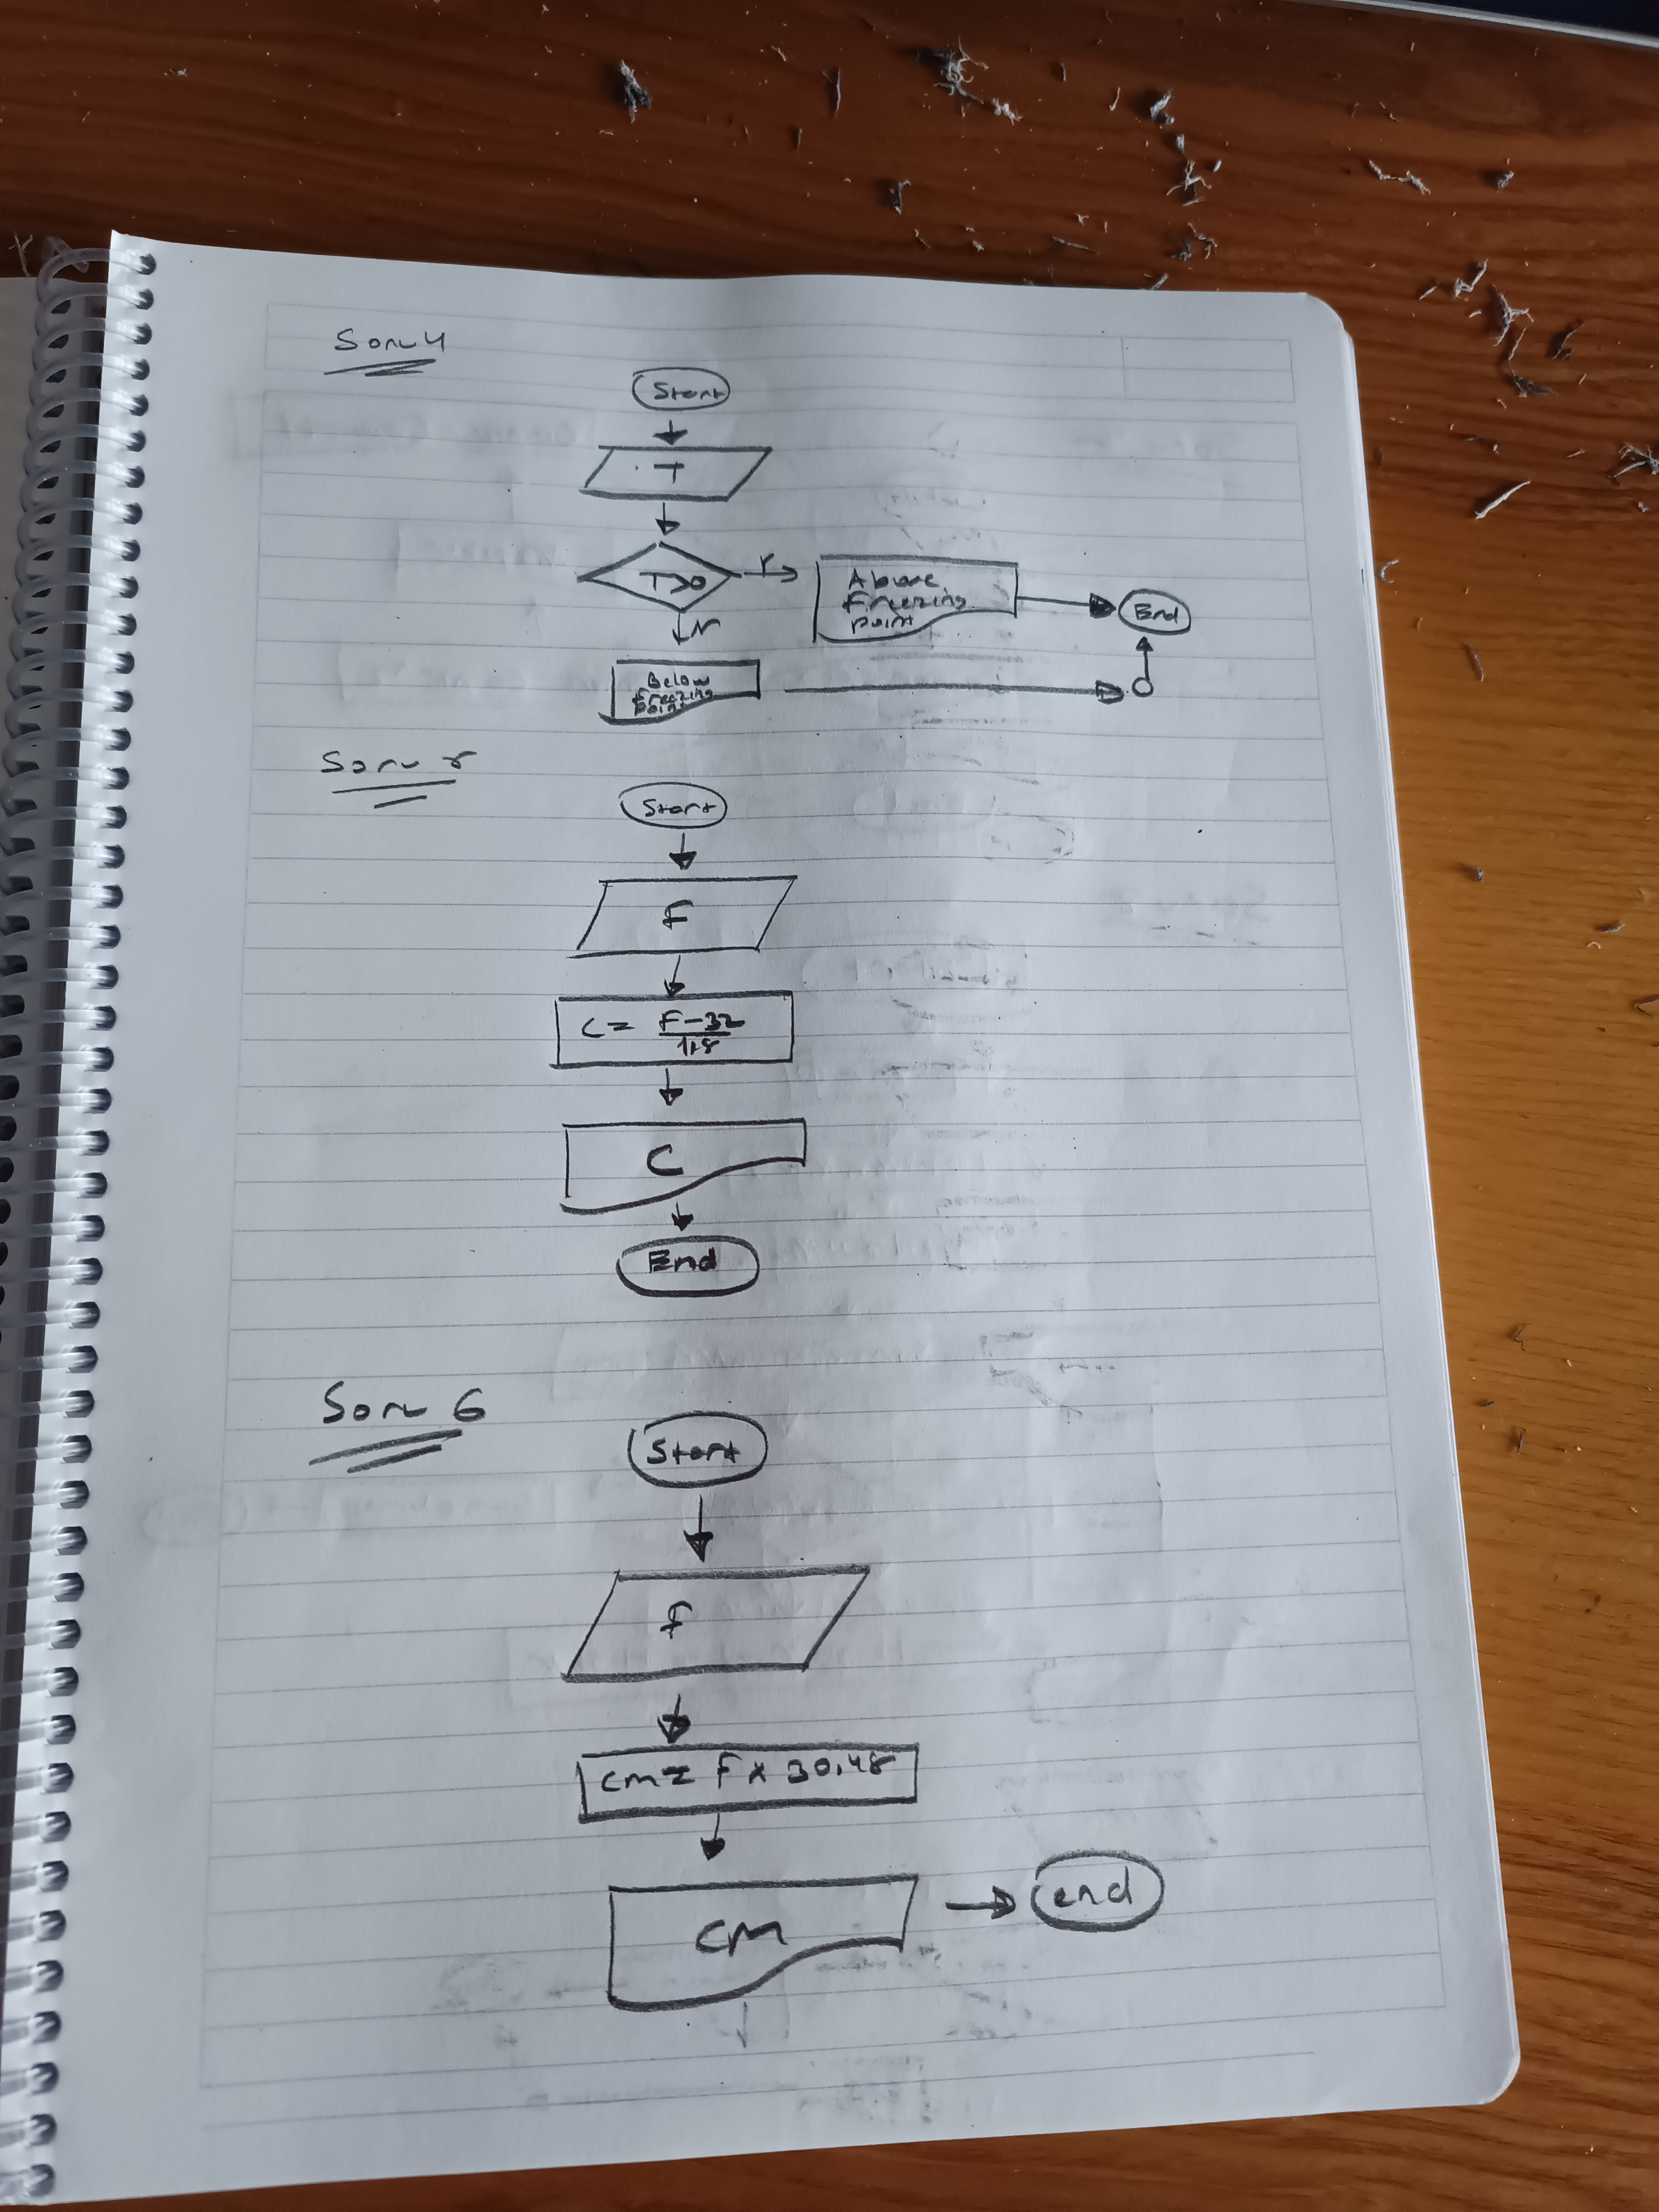 Soru 4
Start
T
T>0
Y
Above
Freezing
point
End
N
Below
Freezing
point
Soru 5
Start
F
C = F-32
1,8
C
End
Soru 6
Start
F
cm = F x 30,48
cm
end